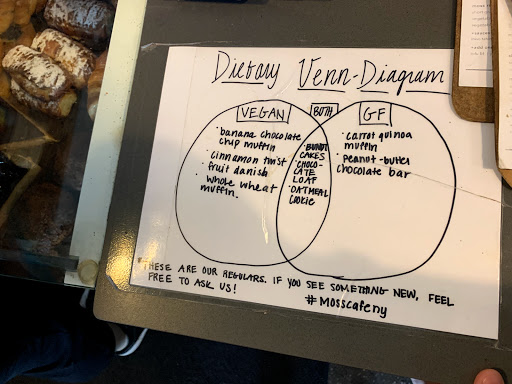 Dietary Venn-Diagram
VEGAN
BOTH
GF
• banana chocolate
chip muffin
• cinnamon twist
• fruit danish
• whole wheat
muffin.
• BUNDT
CAKES
• CHOCO-
LATE
LOAF
• OATMEAL
COOKIE
• carrot quinoa
muffin
• peanut-butter
chocolate bar
*THESE ARE OUR REGULARS. IF YOU SEE SOMETHING NEW, FEEL
FREE TO ASK US!
#mosscafeny